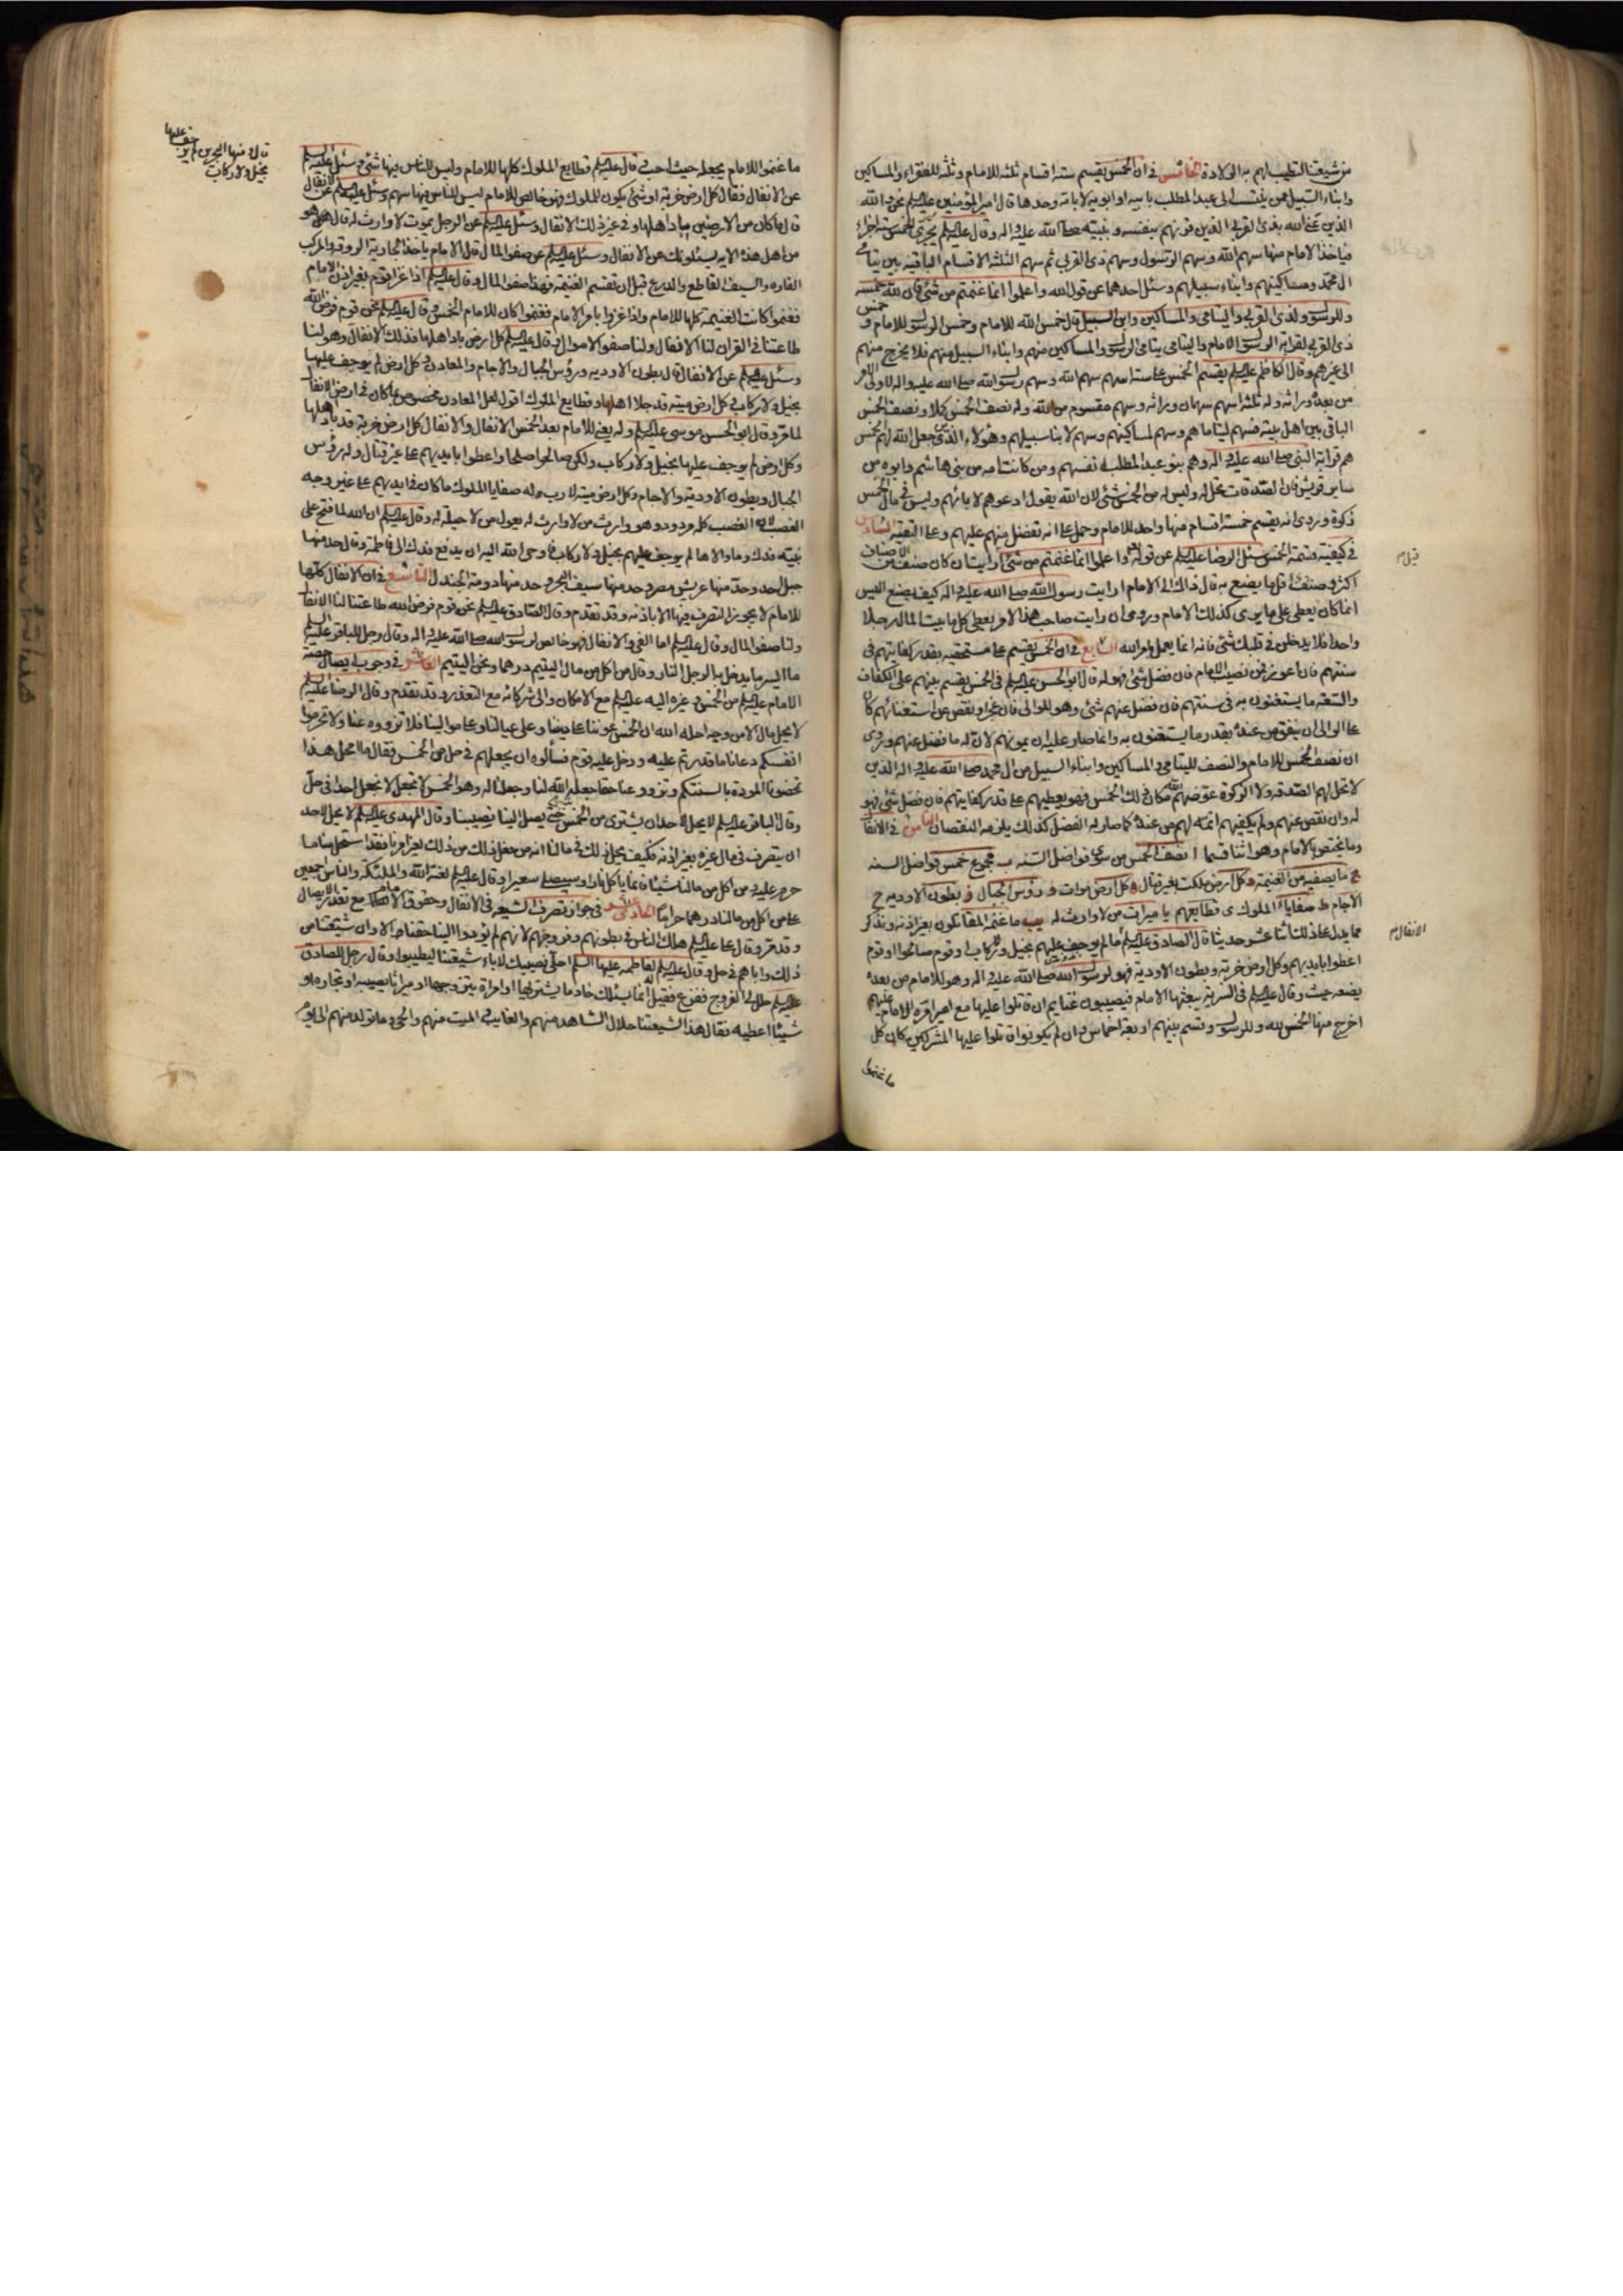 من شيعتنا لتطيب لهم به الولادة الخامس في ان الخمس يقسم ستة اقسام ثلثة للامام وثلثة للفقراء والمساكين
وابناء السبيل ممن ينتسب الى عبد المطلب بابيه او ابويه لا بامه وحدها قال امير المؤمنين عليه السلم نحن والله
الذين عنى الله بذي القربى الذين قرنهم بنفسه وبنبيه صلى الله عليه واله وقال عليه السلم يجزى الخمس ستة اجزاء
فياخذ الامام منها سهم الله وسهم الرسول وسهم ذي القربى ثم سهم الثلثة الاقسام الباقية بين يتامى
ال محمد ومساكينهم وابناء سبيلهم وسئل احدهما عن قول الله واعلموا انما غنمتم من شئ فان لله خمسه
وللرسول ولذي القربى واليتامى والمساكين وابن السبيل قال خمس الله للامام وخمس الرسول للامام وخمس
ذي القربى لقرابة الرسول الامام واليتامى يتامى الرسول والمساكين منهم وابناء السبيل منهم فلا يخرج منهم
الى غيرهم وقال الكاظم عليه السلم يقسم الخمس على ستة اسهم سهم الله وسهم رسول الله صلى الله عليه واله لاولى الامر
من بعده وراثة وله ثلثة اسهم سهمان وراثة وسهم مقسوم من الله وله نصف الخمس كملا ونصف الخمس
الباقي بين اهل بيته فسهم ليتاماهم وسهم لمساكينهم وسهم لابناء سبيلهم وهؤلاء الذين جعل الله لهم الخمس
هم قرابة النبي صلى الله عليه واله وهم بنو عبد المطلب نفسهم ومن كانت امه من بني هاشم وابوه من
ساير قريش فان الصدقات تحل له وليس له من الخمس شئ لان الله يقول ادعوهم لابائهم وليس في مال الخمس
زكوة وروى انه يقسم خمسة اقسام منها واحد للامام وحمل على انه تفضل منهم عليهم وعلى التقية السادس
في كيفية قسمة الخمس سئل الرضا عليه السلم عن قوله واعلموا انما غنمتم من شئ ارايت ان كان صنف من الاصناف
قيل م
اكثر وصنف اقل ما يصنع به قال ذاك الى الامام ارايت رسول الله صلى الله عليه واله كيف يصنع اليس
انما كان يعطى على ما يرى كذلك الامام وروى ان رايت صاحب هذا الامر يعطى كل ما بيت المال رجلا
واحدا فلا يدخلن في قلبك شئ فانه انما يعمل بامر الله السابع في ان الخمس يقسم على مستحقيه بقدر كفايتهم في
سنتهم فان اعوز فمن نصيب الامام فان فضل شئ فهو له قال ابو الحسن عليه السلم في الخمس يقسم بينهم على الكفاف
والسعة ما يستغنون به في سنتهم فان فضل عنهم شئ فهو للوالى فان عجز او نقص عن استغنائهم كان
على الوالى ان ينفق من عنده بقدر ما يستغنون به وانما صار عليه ان يمونهم لان له ما فضل عنهم وروى
ان نصف الخمس للامام والنصف لليتامى والمساكين وابناء السبيل من ال محمد صلى الله عليه واله الذين
لا تحل لهم الصدقة ولا الزكوة عوضهم الله مكان ذلك الخمس فهو يعطيهم على قدر كفايتهم فان فضل شئ فهو
له وان نقص عنهم ولم يكفهم اتمه لهم من عنده كما صار له الفضل كذلك يلزمه النقصان الثامن في الانفال
وما يختص بالامام وهو اثنا قسما ا نصف الخمس من سوى فواضل السنة ب مجموع خمس فواضل السنة
ج ما يصفيه من الغنيمة د كل ارض ملكت بغير قتال ه كل ارض موات و رؤس الجبال ز بطون الاودية ح
الاجام ط صفايا الملوك ى قطايعهم يا ميراث من لا وارث له يب ما غنمه المقاتلون بغير اذنه ونذكر
مما يدل على ذلك اثنا عشر حديثا قال الصادق عليه السلم الانفال ما لم يوجف عليهم بخيل ولا ركاب او قوم صالحوا او قوم
الانفال م
اعطوا بايديهم وكل ارض خربة وبطون الاودية فهو لرسول الله صلى الله عليه واله وهو للامام من بعده
يضعه حيث وقال عليه السلم في السرية يبعثها الامام فيصيبون غنايم ان قاتلوا عليها مع امير امره الامام عليهم
اخرج منها الخمس لله وللرسول وقسم بينهم اربعة اخماس وان لم يكونوا قاتلوا عليها المشركين كان كل
ما غنموا
ما غنموا للامام يجعله حيث احب وقال عليه السلم قطايع الملوك كلها للامام وليس للناس فيها شئ وسئل عليه السلم
عن الانفال فقال كل ارض خربة او شئ يكون للملوك فهو خالص للامام ليس للناس فيها سهم وسئل عليه السلم عن الانفال
قال ومنها البحرين لم يوجف عليها
بخيل ولا ركاب
قال ما كان من الارضين باد اهلها وفي غير ذلك الانفال وسئل عليه السلم عن الرجل يموت لا وارث له قال هو
من اهل هذه الاية يسئلونك عن الانفال وسئل عليه السلم عن صفو المال قال الامام ياخذ الجارية الروقة والمركب
الفاره والسيف القاطع والدرع قبل ان تقسم الغنيمة فهذا صفو المال وقال عليه السلم اذا غزا قوم بغير اذن الامام
فغنموا كانت الغنيمة كلها للامام واذا غزوا بامر الامام فغنموا كان للامام الخمس وقال عليه السلم نحن قوم فرض الله
طاعتنا في القران لنا الانفال ولنا صفو الاموال وقال عليه السلم كل ارض باد اهلها فذلك الانفال وهو لنا
وسئل عليه السلم عن الانفال قال بطون الاودية ورؤس الجبال والاجام والمعادن وكل ارض لم يوجف عليها
بخيل ولا ركاب وكل ارض ميتة قد جلا اهلها وقطايع الملوك اقول لعل المعادن مخصوص بما كان في ارض الانفال
لما مر وقال ابو الحسن موسى عليه السلم وله يعني للامام بعد الخمس الانفال والانفال كل ارض خربة قد باد اهلها
وكل ارض لم يوجف عليها بخيل ولا ركاب ولكن صالحوا صلحا واعطوا بايديهم على غير قتال وله رؤس
الجبال وبطون الاودية والاجام وكل ارض ميتة لا رب لها وله صفايا الملوك ما كان في ايديهم على غير وجه
الغصب لان الغصب كله مردود وهو وارث من لا وارث له يعول من لا حيلة له وقال عليه السلم ان الله لما فتح على
نبيه فدك وما والاها لم يوجف عليهم بخيل ولا ركاب فاوحى الله اليه ان يدفع فدك الى فاطمة وقال حد منها
جبل احد وحد منها عريش مصر وحد منها سيف البحر وحد منها دومة الجندل التاسع في ان الانفال كلها
للامام لا يجوز التصرف فيها الا باذنه وقد تقدم وقال الصادق عليه السلم نحن قوم فرض الله طاعتنا لنا الانفال
ولنا صفو المال وقال عليه السلم اما الفئ والانفال فهو خالص لرسول الله صلى الله عليه واله وقال رجل للباقر عليه السلم
ما ايسر ما يدخل به الرجل النار وقال من اكل من مال اليتيم درهما ونحن اليتيم العاشر في وجوب ايصال حصة
الامام عليه السلم من الخمس وغيره اليه عليه السلم مع الامكان والى شركائه مع التعذر وقد تقدم وقال الرضا عليه السلم
لا يحل مال الا من وجه احله الله ان الخمس عوننا على ديننا وعلى عيالنا وعلى موالينا فلا تزووه عنا ولا تحرموا
انفسكم دعانا ما قدرتم عليه ودخل عليه قوم فسألوه ان يجعلهم في حل من الخمس فقال ما امحل هذا
تمحضونا المودة بالسنتكم وتزوون عنا حقا جعله الله لنا وجعلنا له وهو الخمس لا نجعل لا نجعل احدا في حل
وقال الباقر عليه السلم لا يحل لاحد ان يشترى من الخمس شيئا حتى يصل الينا نصيبنا وقال المهدي عليه السلم لا يحل لاحد
ان يتصرف في مال غيره بغير اذنه فكيف يحل ذلك في مالنا انه من فعل ذلك من ذلك بغير امرنا فقد استحل منا ما
حرم عليه ومن اكل من مالنا شيئا فانما ياكل نارا وسيصلى سعيرا وقال عليه السلم لعنة الله والملئكة والناس اجمعين
على من اكل من مالنا درهما حراما الحادي عشر في جواز تصرف الشيعة في الانفال وحقوق الامام مع تعذر الايصال
وقد مر وقال على عليه السلم هلك الناس في بطونهم وفروجهم لانهم لم يؤدوا الينا حقنا الا وان شيعتنا من
ذلك واباهم في حل وقال عليه السلم لفاطمة عليها السلم احلي نصيبك لاباء شيعتنا ليطيبوا وقال رجل للصادق
عليه السلم حلل الى الفروج ففزع فقيل انما يسئلك خادما يشتريها او امراة يتزوجها او ميراثا يصيبه او تجارة او
شيئا اعطيه فقال هذا لشيعتنا حلال الشاهد منهم والغايب والميت منهم والحي وما تولد منهم الى يوم